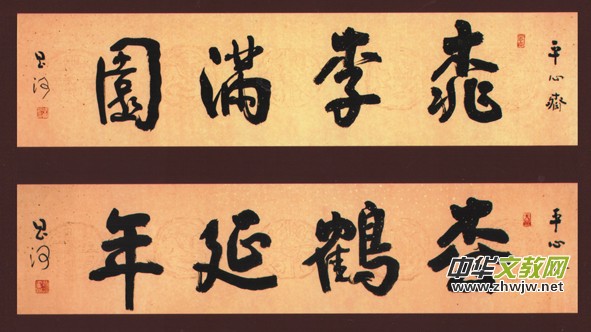 平心齋
桃李滿園
平心
松鶴延年
中华文教网
www.zhwjw.net